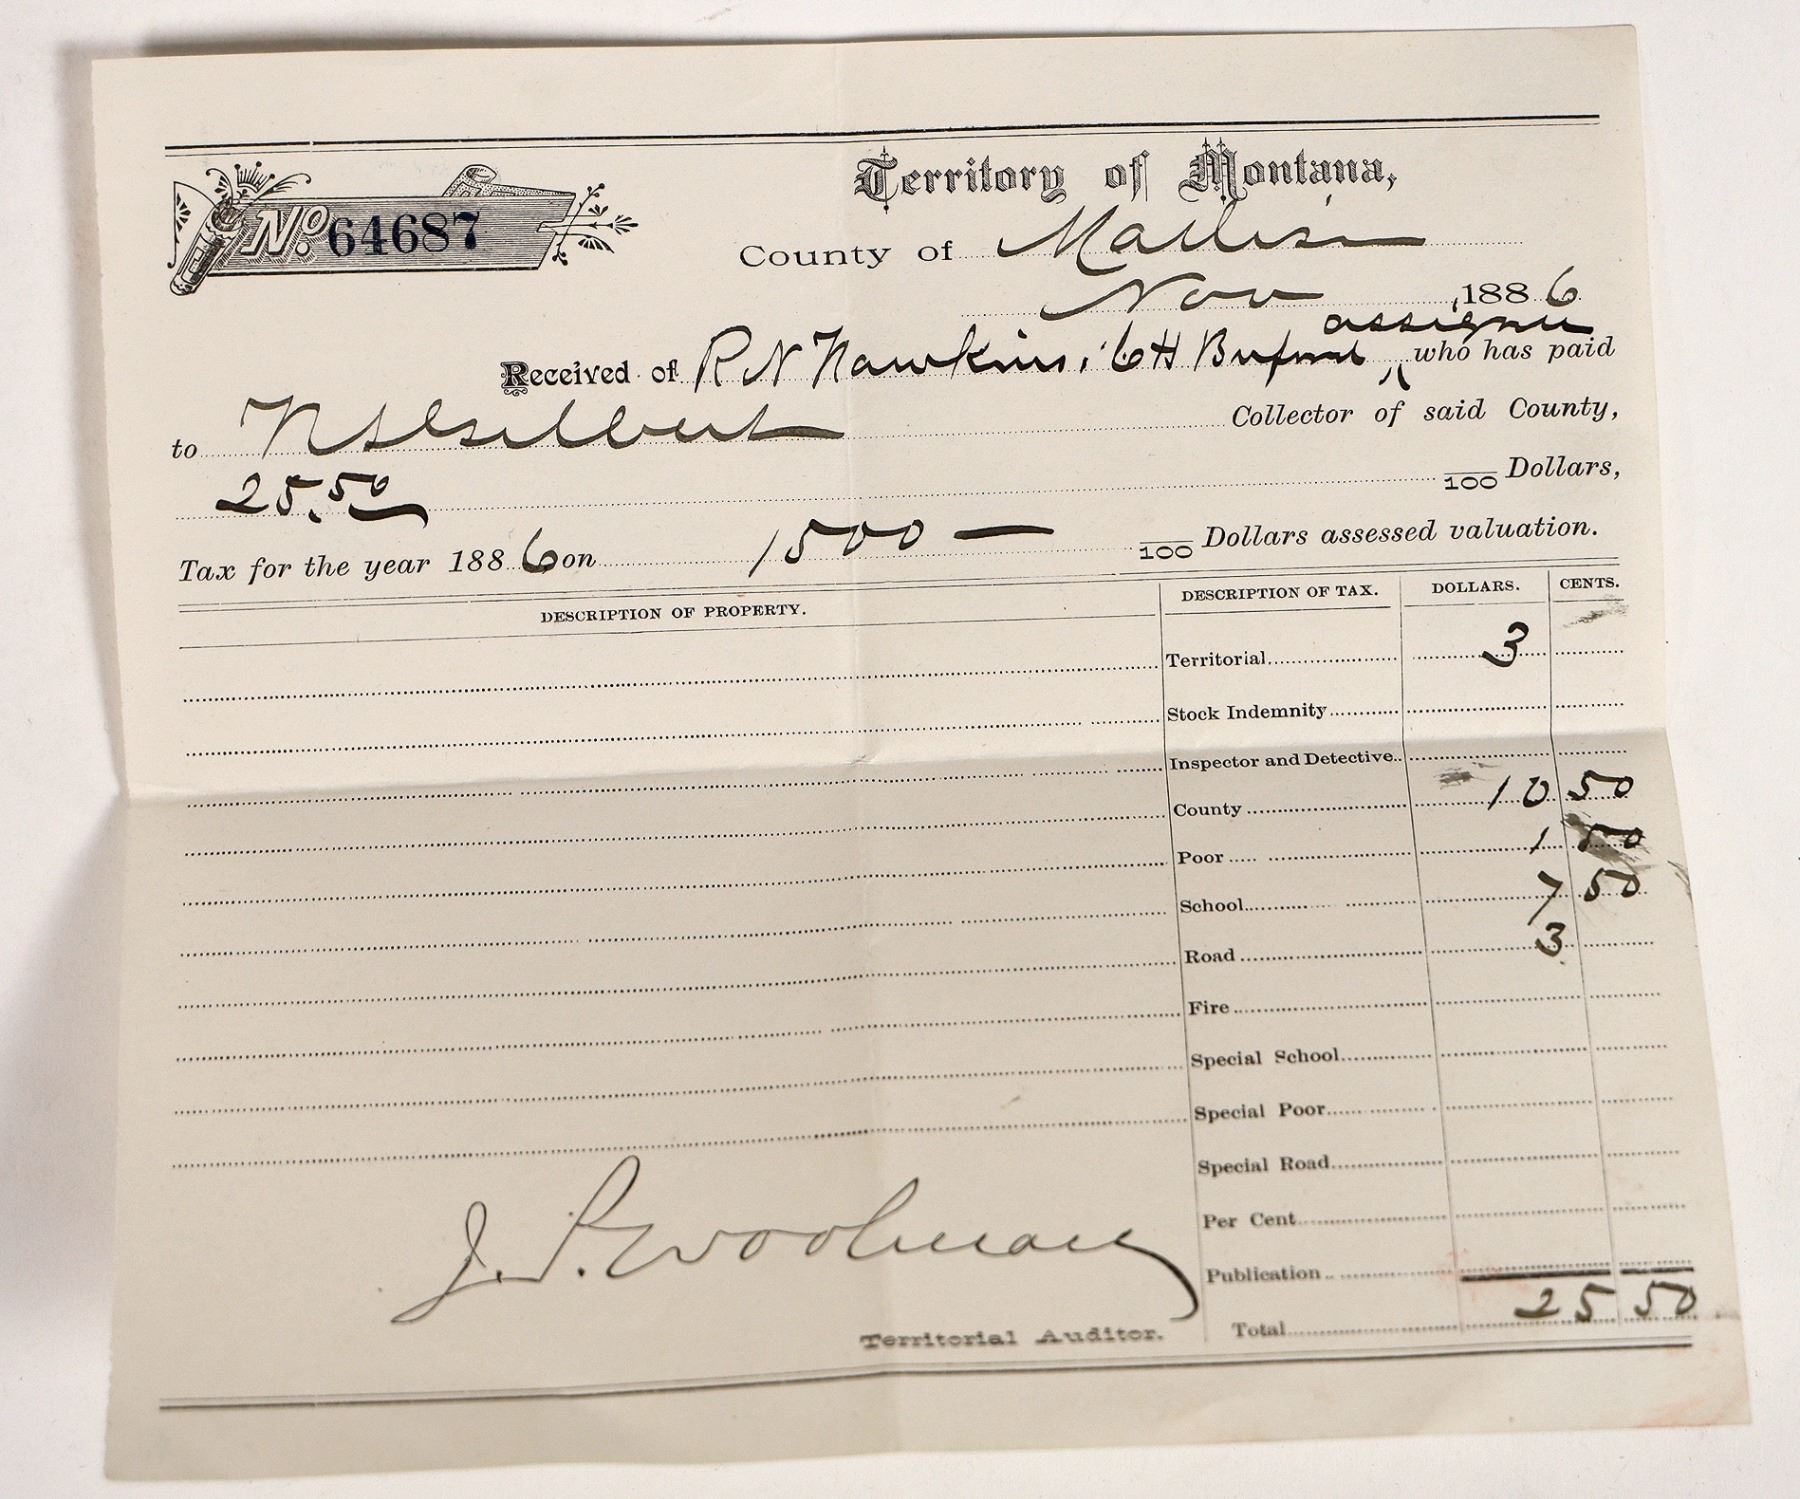 Territory of Montana,
No. 64687
County of Madison
Nov ,1886
assignee
Received of R N Hawkins; C H Buford who has paid
to N S Gilbert Collector of said County,
25.50 /100 Dollars,
Tax for the year 1886 on 1500 — /100 Dollars assessed valuation.
DESCRIPTION OF PROPERTY. DESCRIPTION OF TAX. DOLLARS. CENTS.
Territorial 3
Stock Indemnity
Inspector and Detective
County 10 50
Poor 1 50
School 7 50
Road 3
Fire
Special School
Special Poor
Special Road
Per Cent
Publication
Total 25 50
J. P. Woolman
Territorial Auditor.